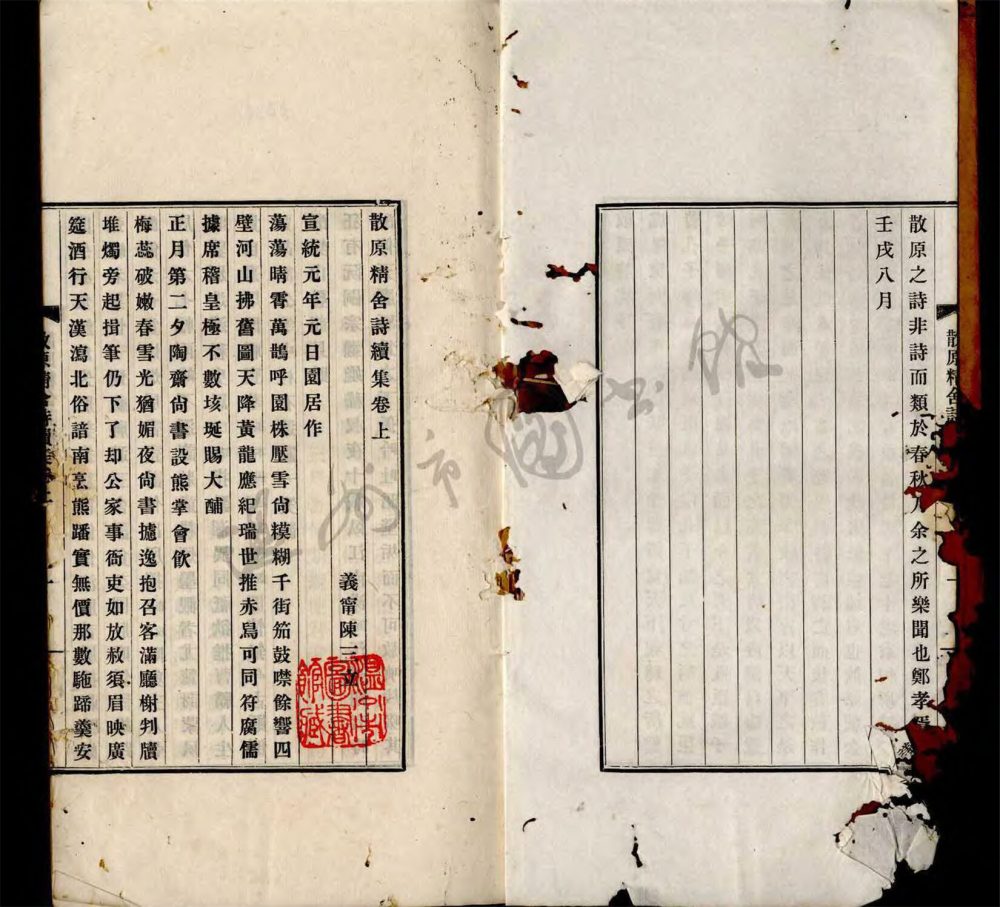 散原之詩非詩而類於春秋乃余之所樂聞也鄭孝胥
壬戌八月
散原精舍詩
散原精舍詩續集卷上
義甯陳三立
宣統元年元日園居作
蕩蕩晴霄萬鵲呼園株壓雪尙模糊千街笳鼓噤餘響四
壁河山拂舊圖天降黃龍應紀瑞世推赤烏可同符腐儒
據席稽皇極不數垓埏賜大酺
正月第二夕陶齋尙書設熊掌會飮
梅蕊破嫩春雪光猶媚夜尙書攄逸抱召客滿廳榭判牘
堆燭旁起揖筆仍下了却公家事衙吏如放赦須眉映廣
筵酒行天漢瀉北俗諳南烹熊蹯實無價那數駞蹄羹安
散原精舍詩續集卷上
溫州市圖書館藏
溫州市圖書館